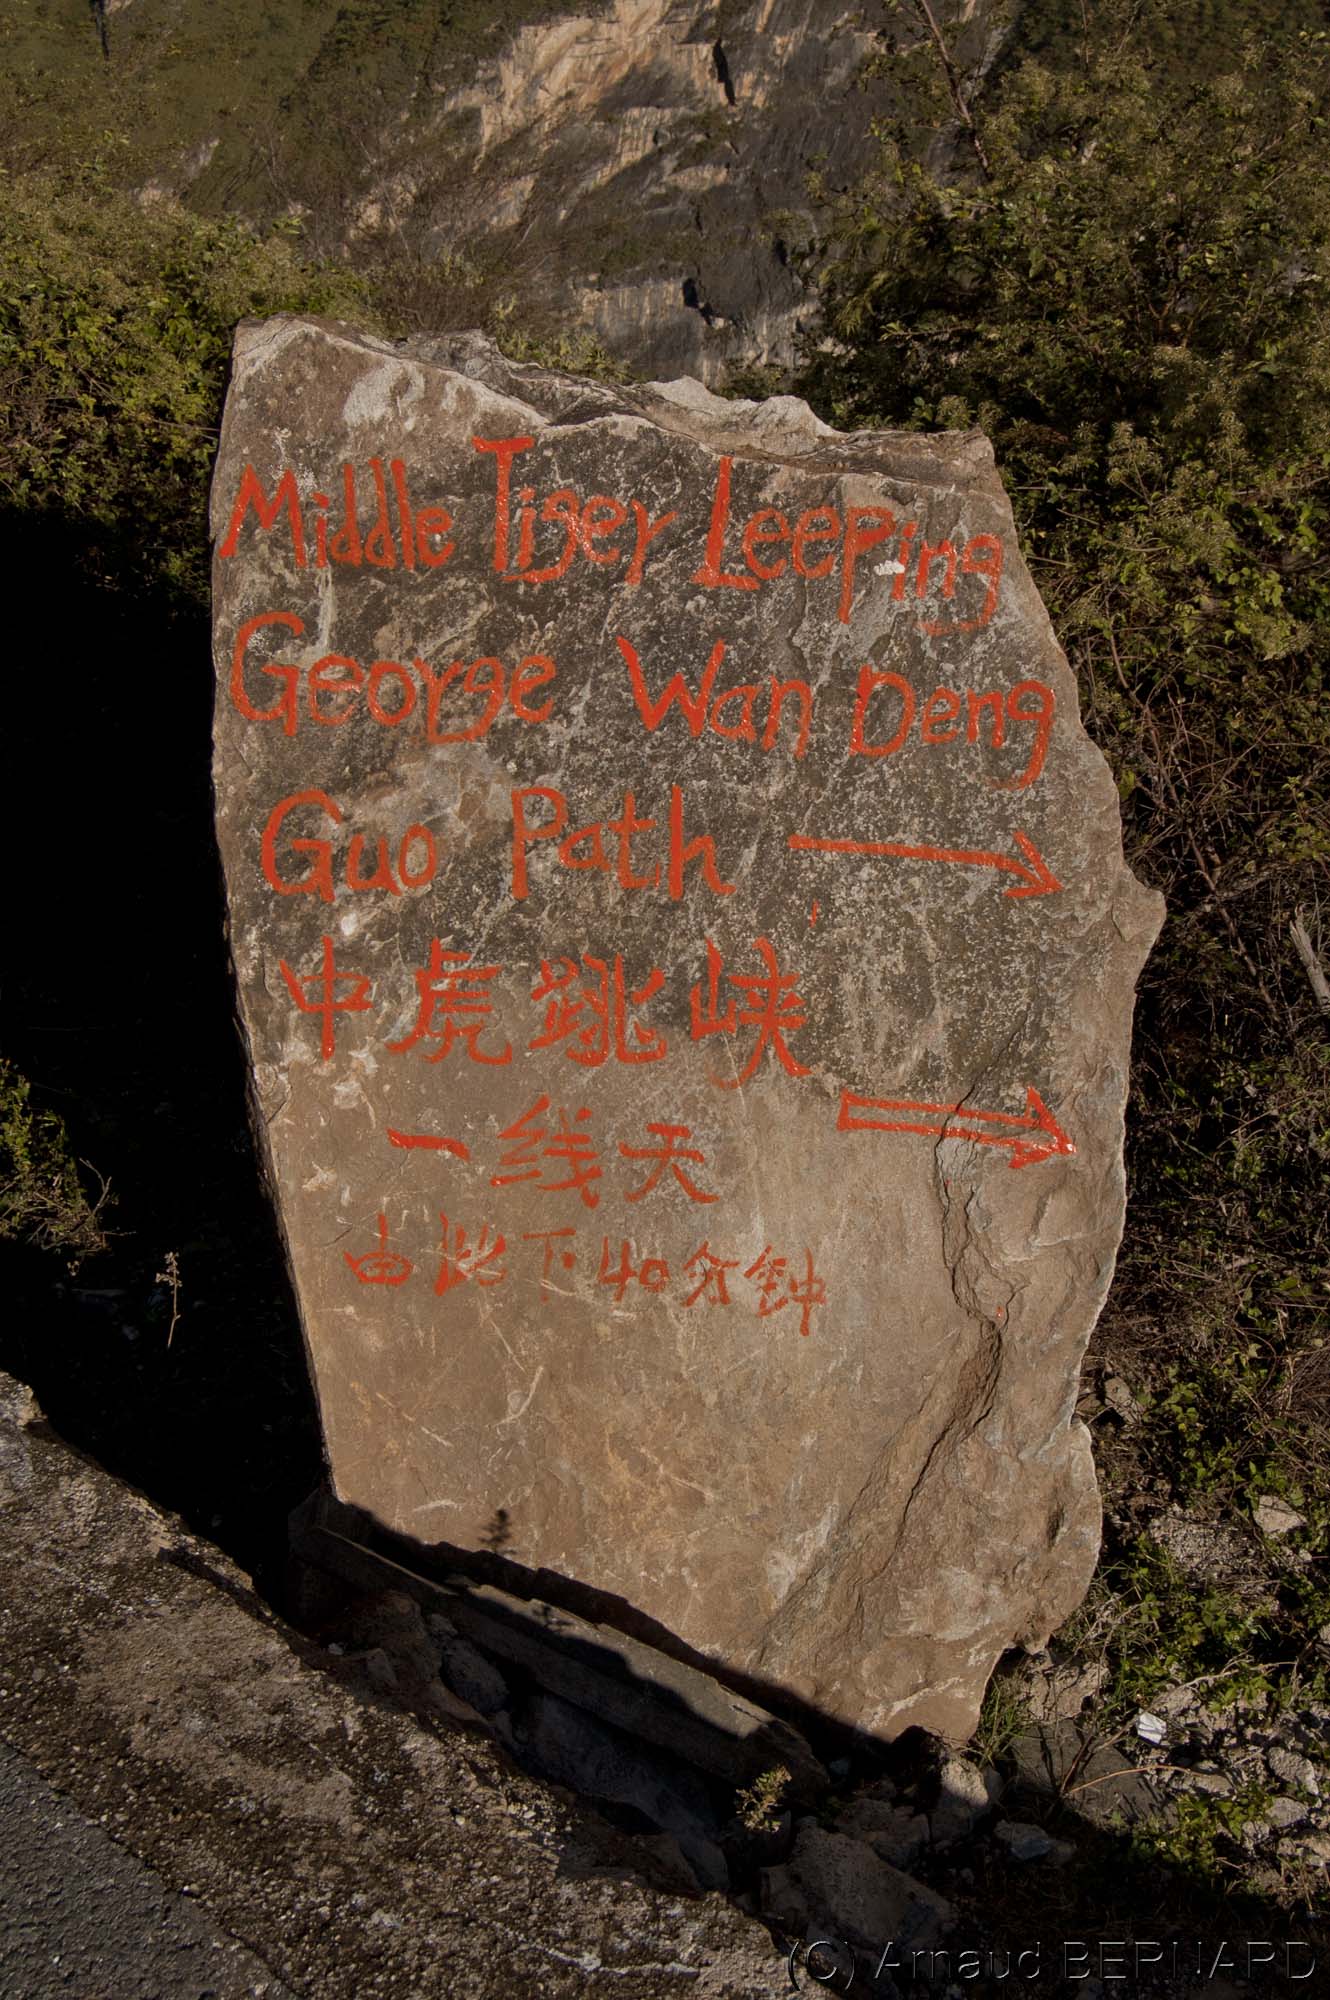 Middle Tiger Leeping
George Wan Deng
Guo Path →
中虎跳峡
一线天 ⇒
由此下40分钟
(C) Arnaud BERNARD